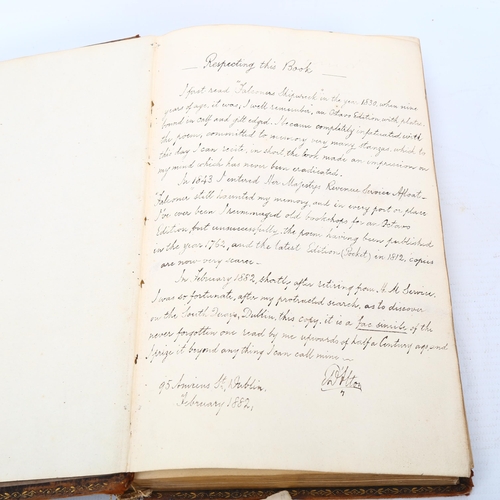 Respecting this Book
I first read "Falconers Shipwreck" in the year 1830, when nine
years of age, it was, I well remember, an Octavo Edition with plates,
bound in calf and gilt edged. I became completely infatuated with
the poem, committed to memory very many stanzas, which to
this day I can recite, in short, the book made an impression on
my mind which has never been eradicated.
In 1843 I entered Her Majestys Revenue Service Afloat -
"Falconer" still haunted my memory, and in every port or place
I've ever been I rummaged old bookshops for an Octavo
Edition, but unsuccessfully, the poem having been published
in the year 1762, and the latest Edition (Pocket) in 1812, copies
are now very scarce -
In February 1882, shortly after retiring from H.M. Service,
I was so fortunate, after my protracted search, as to discover
on the South Quays, Dublin, this copy, it is a fac simile of the
never forgotten one read by me upwards of half a Century ago, and
I prize it beyond anything I can call mine -
95 St, Dublin.
February 1882,